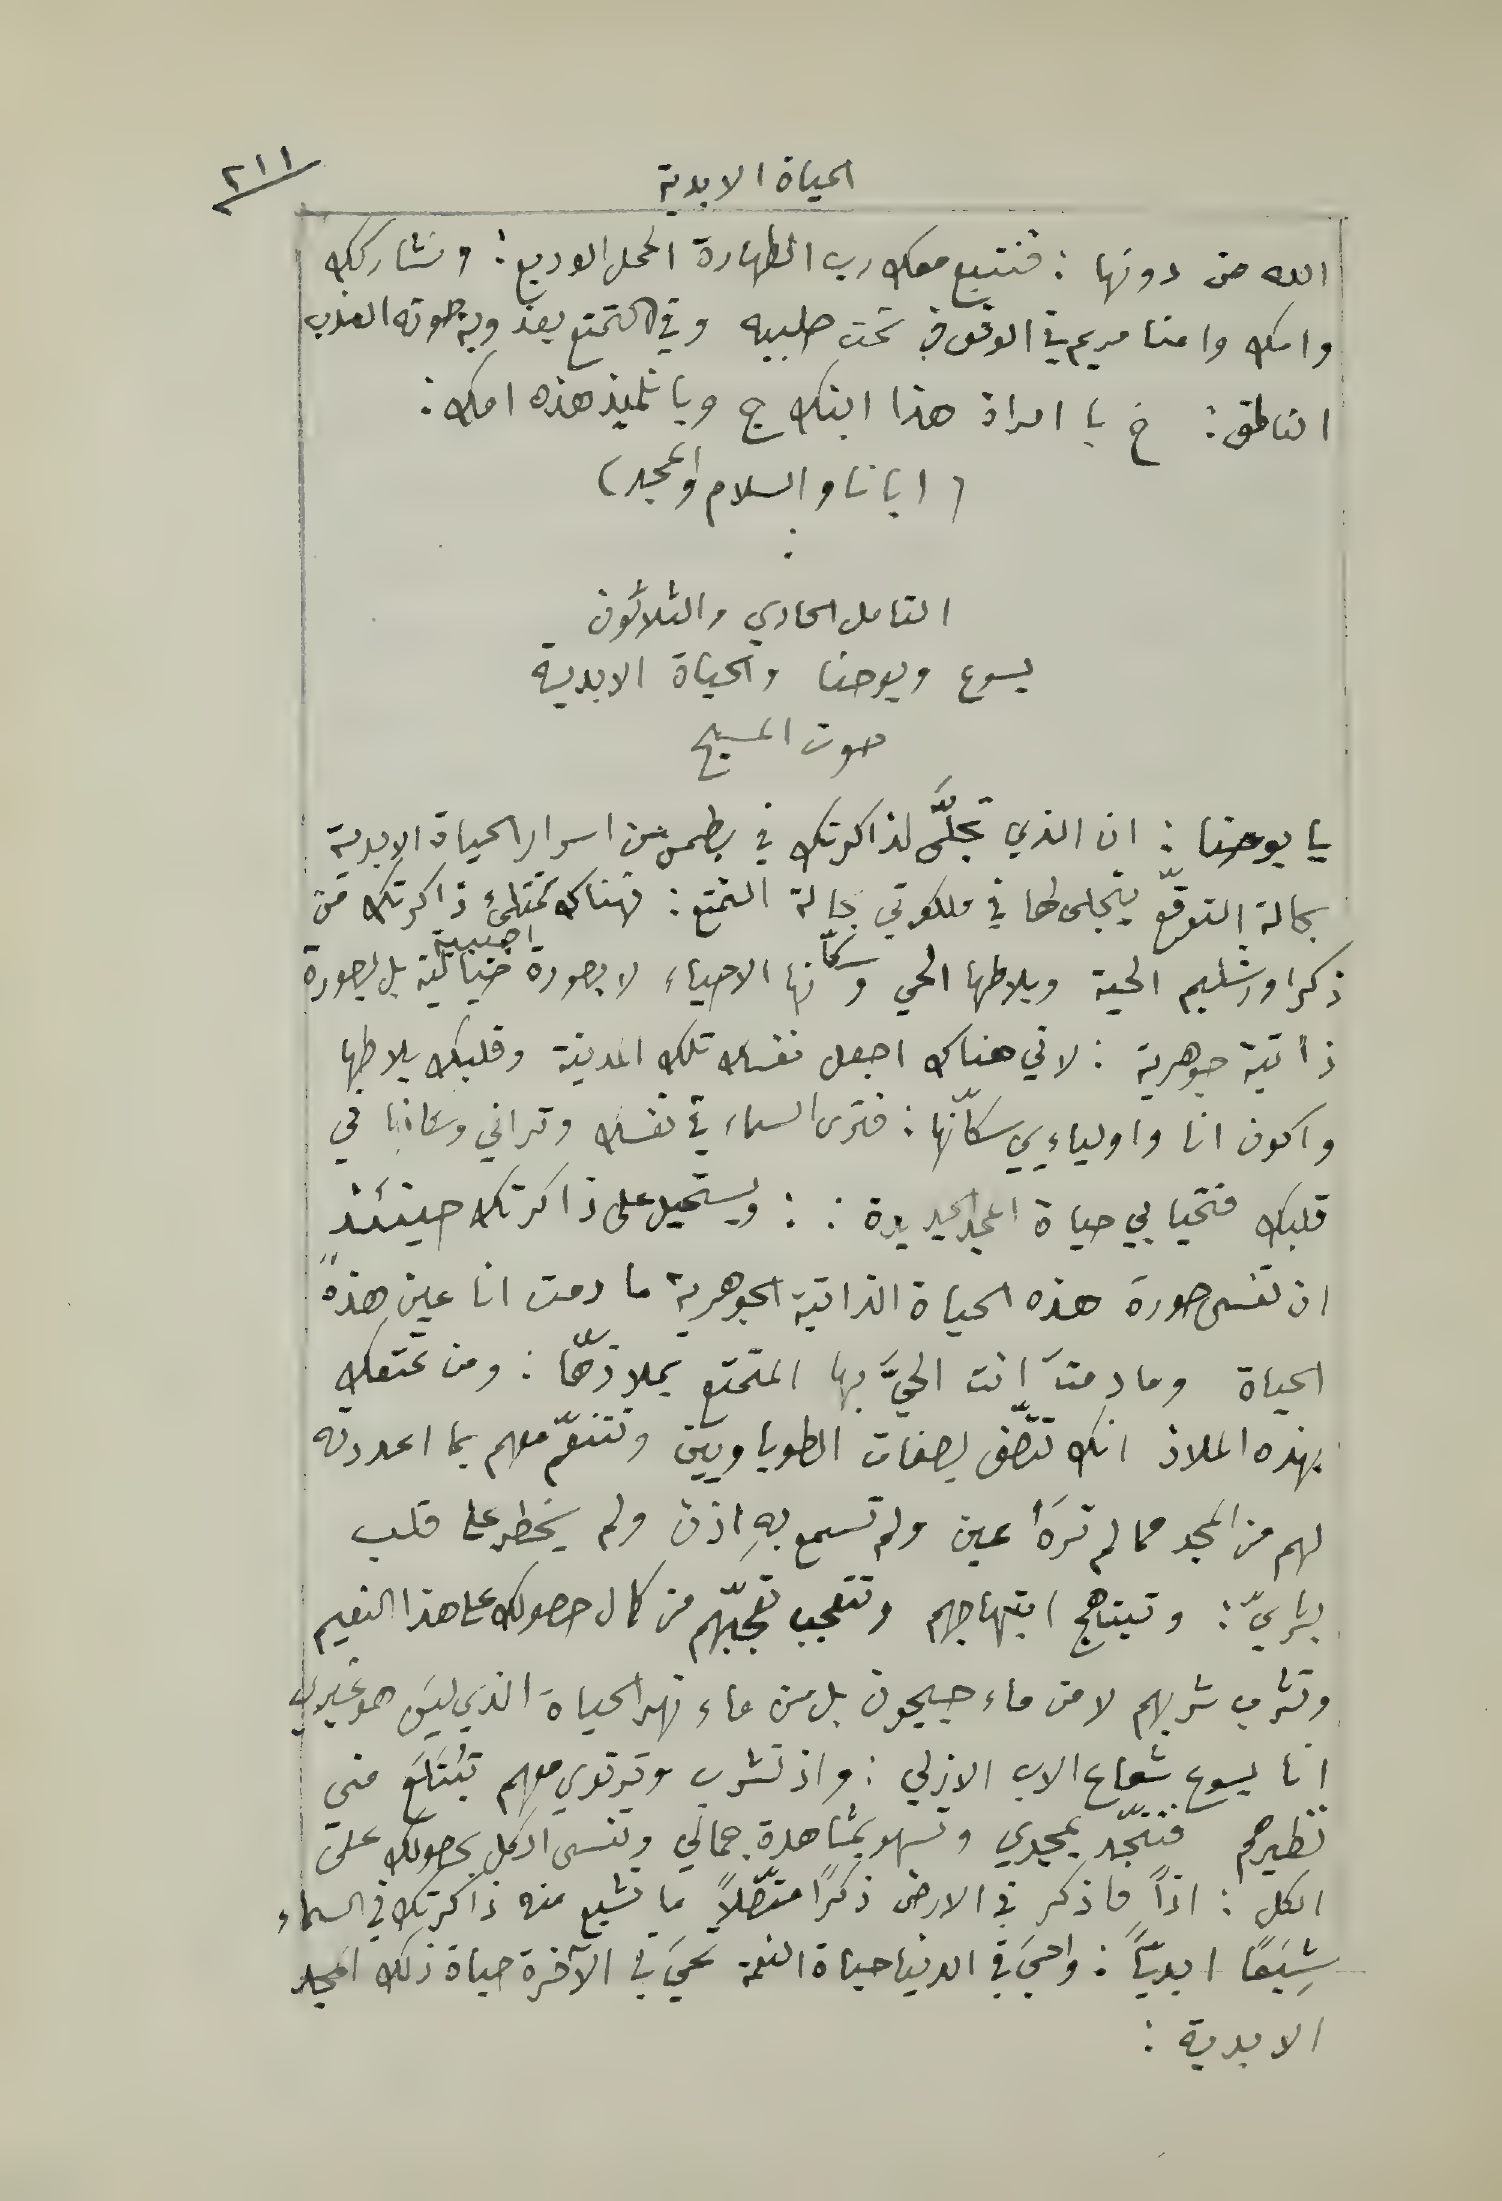 ٢١١
الحياة الابدية
الله من دونها : فنتبع معك رب الطهارة الحمل الوديع : ونشاركك
وامك وامنا مريم في الوقوف تحت صليبه وفي التمتع بعذوبة صوته العذب
الناطق : خ يا امراة هذا ابنك ج ويا تلميذ هذه امك :
( ابانا والسلام والمجد )
التامل الحادي والثلاثون
يسوع ويوحنا والحياة الابدية
صوت المسيح
يا يوحنا : ان الذي تجلَّى لذاكرتك في بطمس من اسرار الحياة الابدية
بحالة التوقّع يتجلى لها في ملكوتي بحالة التمتع : فهناك تمتلئ ذاكرتك من
ذكر اورشليم الحية وبلاطها الحي وسكّانها الاحياء لا بصورة اجنبية خيالية بل بصورة
ذاتية جوهرية : لاني هناك اجعل نفسك تلك المدينة وقلبك بلاطها
واكون انا واولياءي سكّانها : فترى السماء في نفسك وتراني وسكانها في
قلبك فتحيا بي حياة المجد الجديدة : : ويستحيل على ذاكرتك حينئذ
ان تنسى صورة هذه الحياة الذاتية الجوهرية ما دمت انا عين هذه
الحياة وما دمتَ انت الحيَّ بها المتمتع بملاذّها : ومن تمتعك
بهذه الملاذ انك تتّصف بصفات الطوباويين وتتنعّم معهم بما اعددته
لهم من المجد مما لم ترَهُ عين ولم تسمع بهِ اذن ولم يخطر على قلب
بشريّ : وتبتهج ابتهاجهم وتتعجب تعجّبهم من كمال حصولك على هذا النعيم
وتشرب شربهم لا من ماء جيحون بل من ماء نهر الحياة الذي ليس هو غيري
انا يسوع شعاع الاب الازلي : واذ تشرب وترتوي معهم تبتلع مني
نظيرهم فتتّحد بمجدي وتسهو بمشاهدة جمالي وتنسى الكل بحصولك على
الكل : اذاً فاذكر في الارض ذكرًا متّصلاً ما تشبع منه ذاكرتك في السماء
شِبَعًا ابديّاً : واحيَ في الدنيا حياة النعمة تحيَ في الآخرة حياة ذلك المجد
الابدية :